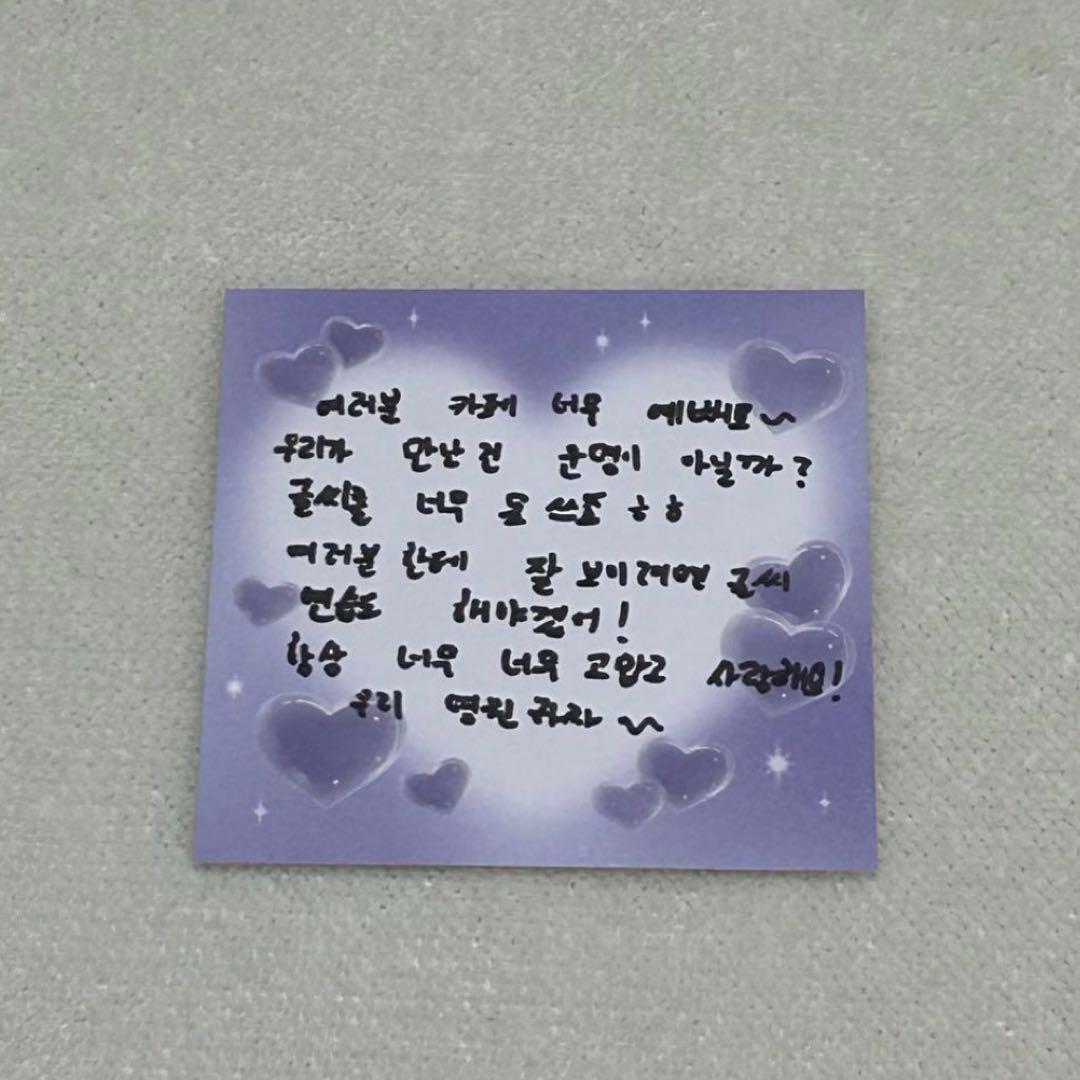 여러분 카페 너무 예뻐요~
우리가 만난 건 운명이 아닐까?
글씨를 너무 못 쓰죠 ㅎㅎ
여러분 한테 잘 보이려면 글씨
연습도 해야겠어!
항상 너무 너무 고맙고 사랑해요!
우리 영원 하자~